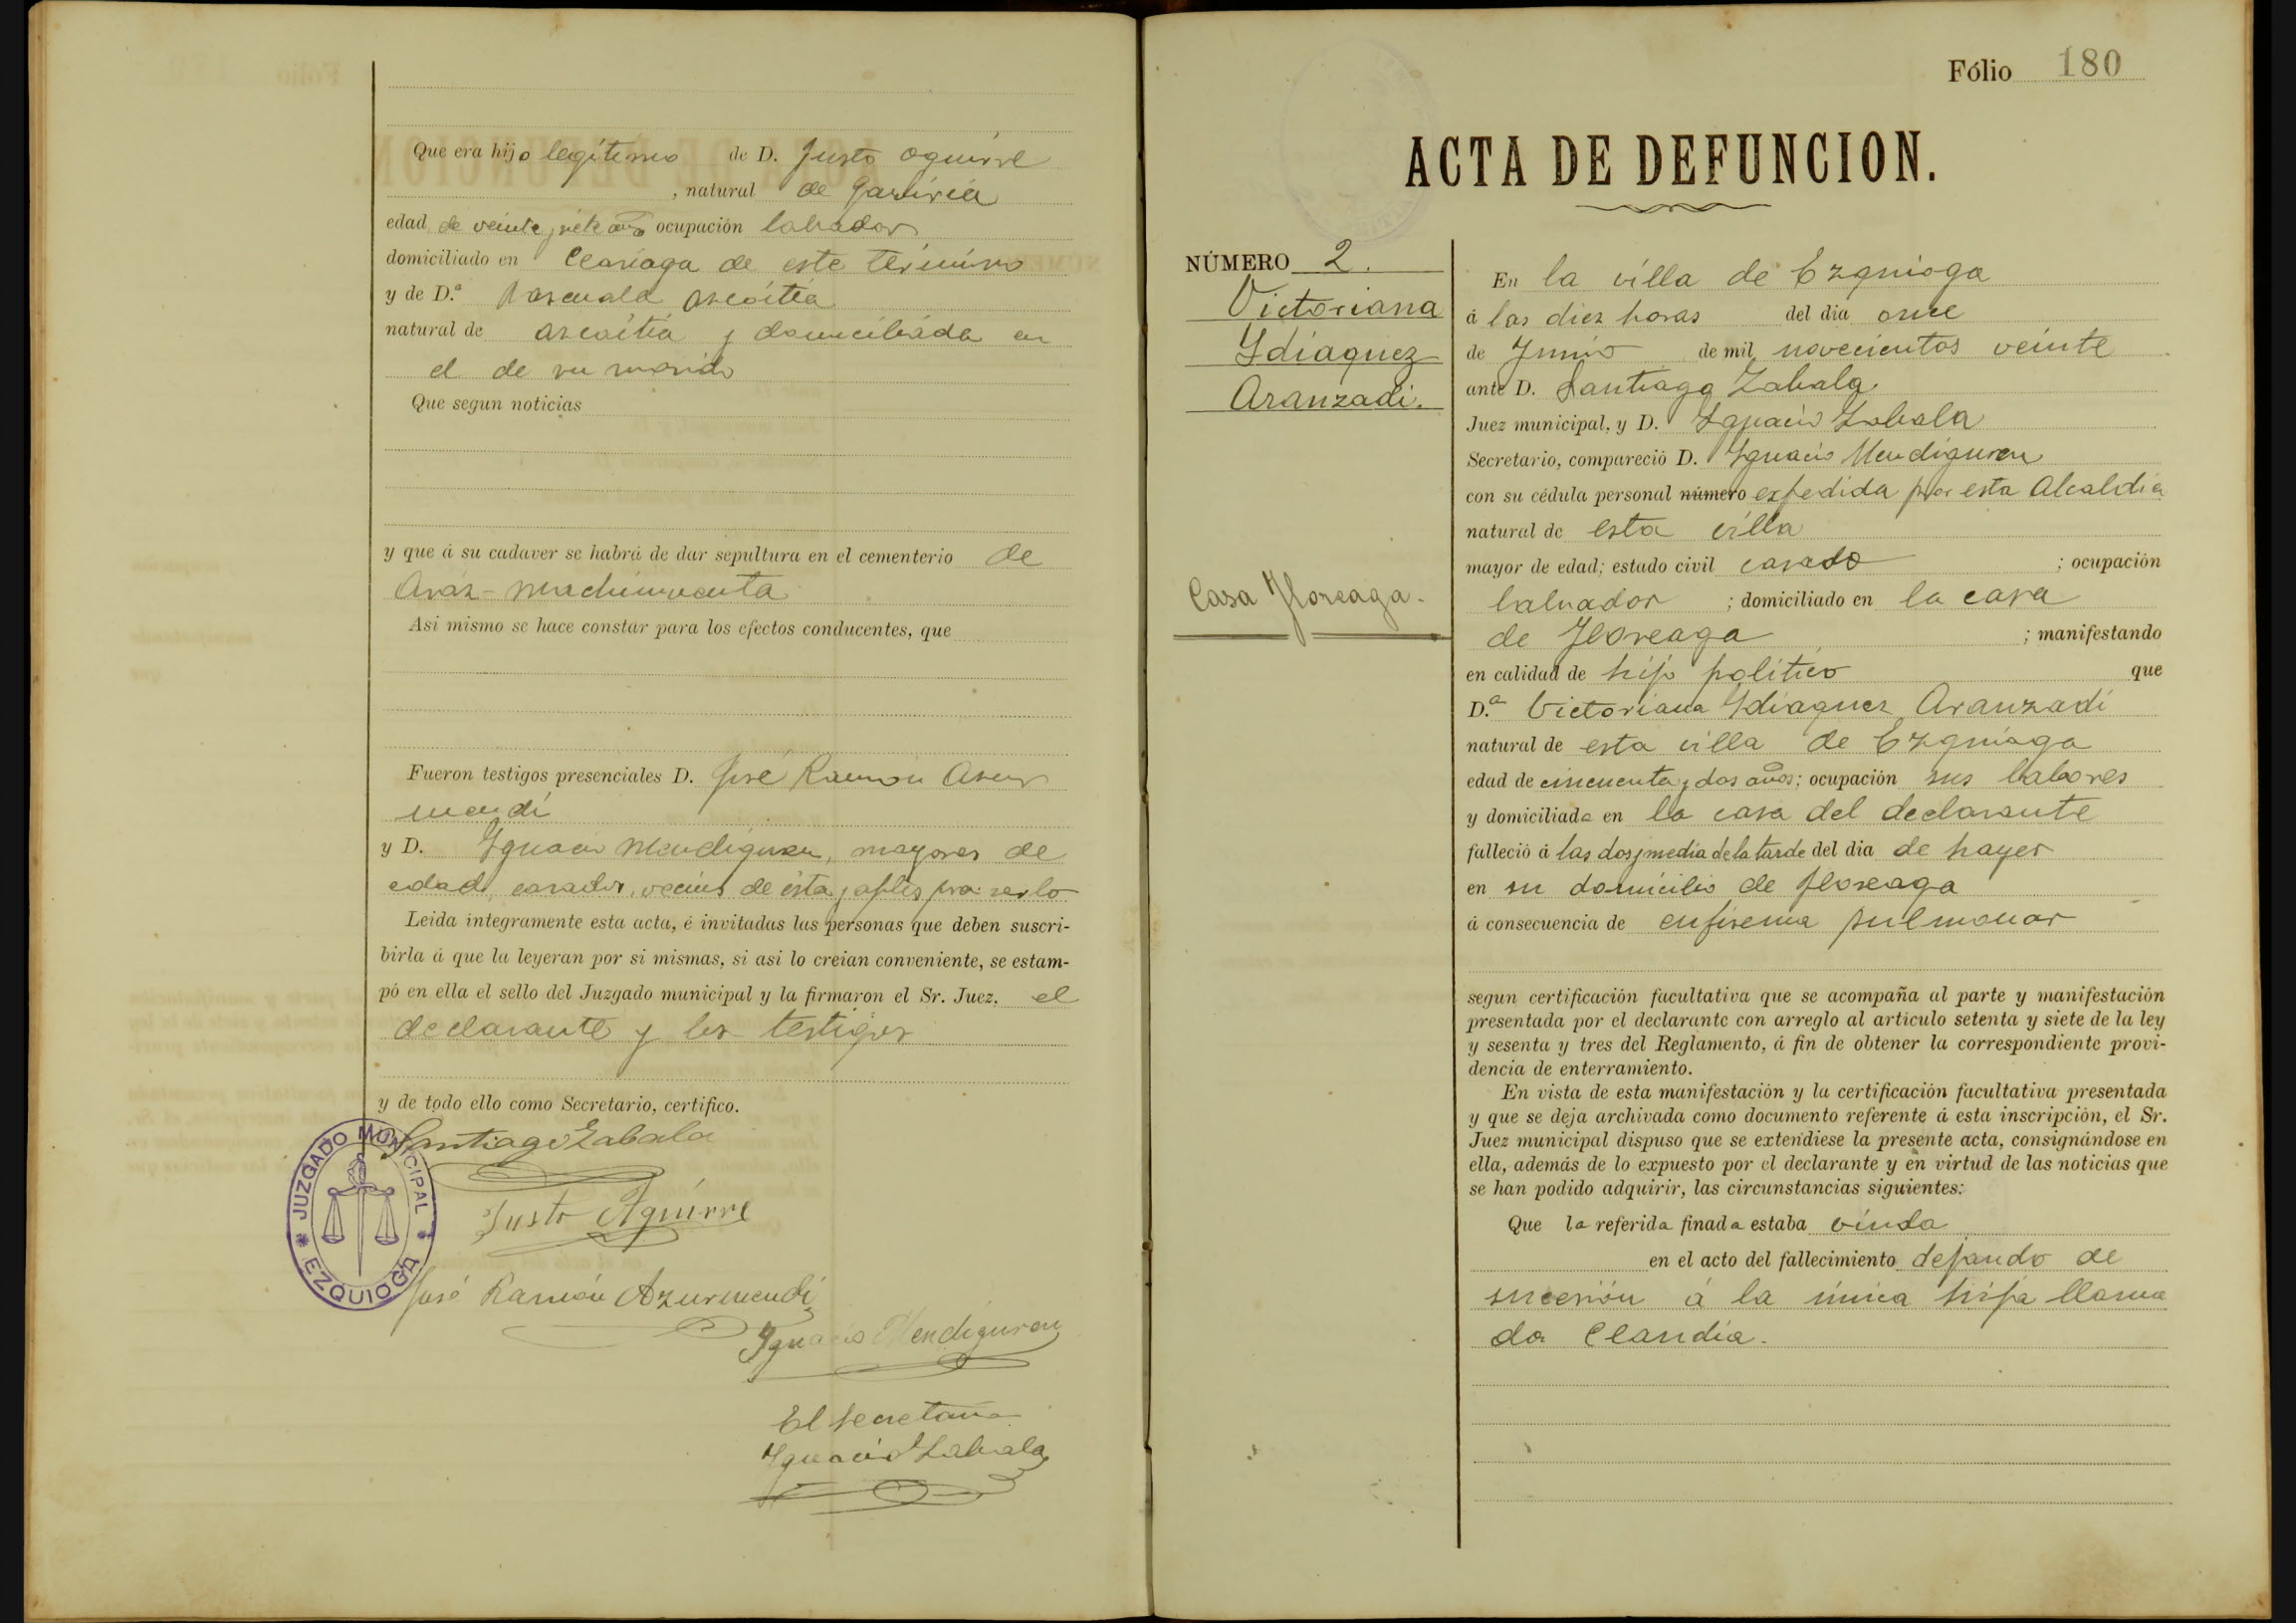 Que era hijo legítimo de D. Justo Aguirre
, natural de Gaviria
edad de veinte y siete años ocupación labrador
domiciliado en de este término
y de D.ª Pascuala Azcoitia
natural de Azcoitia y domiciliada en
el de su marido
Que segun noticias
y que á su cadaver se habrá de dar sepultura en el cementerio de
Araz-Machinventa
Asi mismo se hace constar para los efectos conducentes, que
Fueron testigos presenciales D. José Ramón Azur
mendi
y D. Ignacio Mendiguren, mayores de
edad, casados, vecinos de ésta y aptos para serlo
Leida integramente esta acta, é invitadas las personas que deben suscri-
birla á que la leyeran por si mismas, si asi lo creian conveniente, se estam-
pó en ella el sello del Juzgado municipal y la firmaron el Sr. Juez, el
declarante y los testigos
y de todo ello como Secretario, certifico.
Santiago Zabala
JUZGADO MUNICIPAL
EZQUIOGA
Justo Aguirre
José Ramón Azurmendi
Ignacio Mendiguren
El Secretario
Ignacio Zabala
Fólio 180
ACTA DE DEFUNCION.
NÚMERO 2.
Victoriana
Ydiaquez
Aranzadi.
Casa Yloreaga.
En la villa de Ezquioga
á las diez horas del dia once
de Junio de mil novecientos veinte
ante D. Santiago Zabala
Juez municipal, y D. Ignacio Zabala
Secretario, compareció D. Ignacio Mendiguren
con su cédula personal número expedida por esta Alcaldia
natural de esta villa
mayor de edad; estado civil casado ; ocupación
labrador ; domiciliado en la casa
de Yloreaga ; manifestando
en calidad de hijo politico que
D.ª Victoriana Ydiaquez Aranzadi
natural de esta villa de Ezquioga
edad de cincuenta y dos años; ocupación sus labores
y domiciliada en la casa del declarante
falleció á las dos y media de la tarde del dia de hayer
en su domicilio de Yloreaga
á consecuencia de enfisema pulmonar
segun certificación facultativa que se acompaña al parte y manifestación
presentada por el declarante con arreglo al articulo setenta y siete de la ley
y sesenta y tres del Reglamento, á fin de obtener la correspondiente provi-
dencia de enterramiento.
En vista de esta manifestación y la certificación facultativa presentada
y que se deja archivada como documento referente á esta inscripción, el Sr.
Juez municipal dispuso que se extendiese la presente acta, consignándose en
ella, además de lo expuesto por el declarante y en virtud de las noticias que
se han podido adquirir, las circunstancias siguientes:
Que la referida finada estaba viuda
en el acto del fallecimiento dejando de
sucesión á la única hija llama
da Claudia.